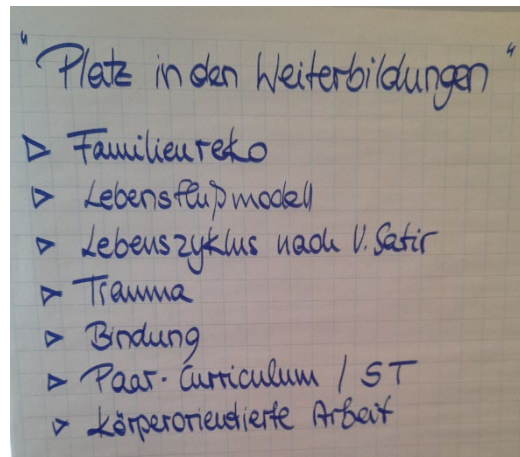 "Platz in den Weiterbildungen"
▷ Familienreko
▷ Lebensflußmodell
▷ Lebenszyklus nach V. Satir
▷ Trauma
▷ Bindung
▷ Paar-Curriculum / ST
▷ Körperorientierte Arbeit